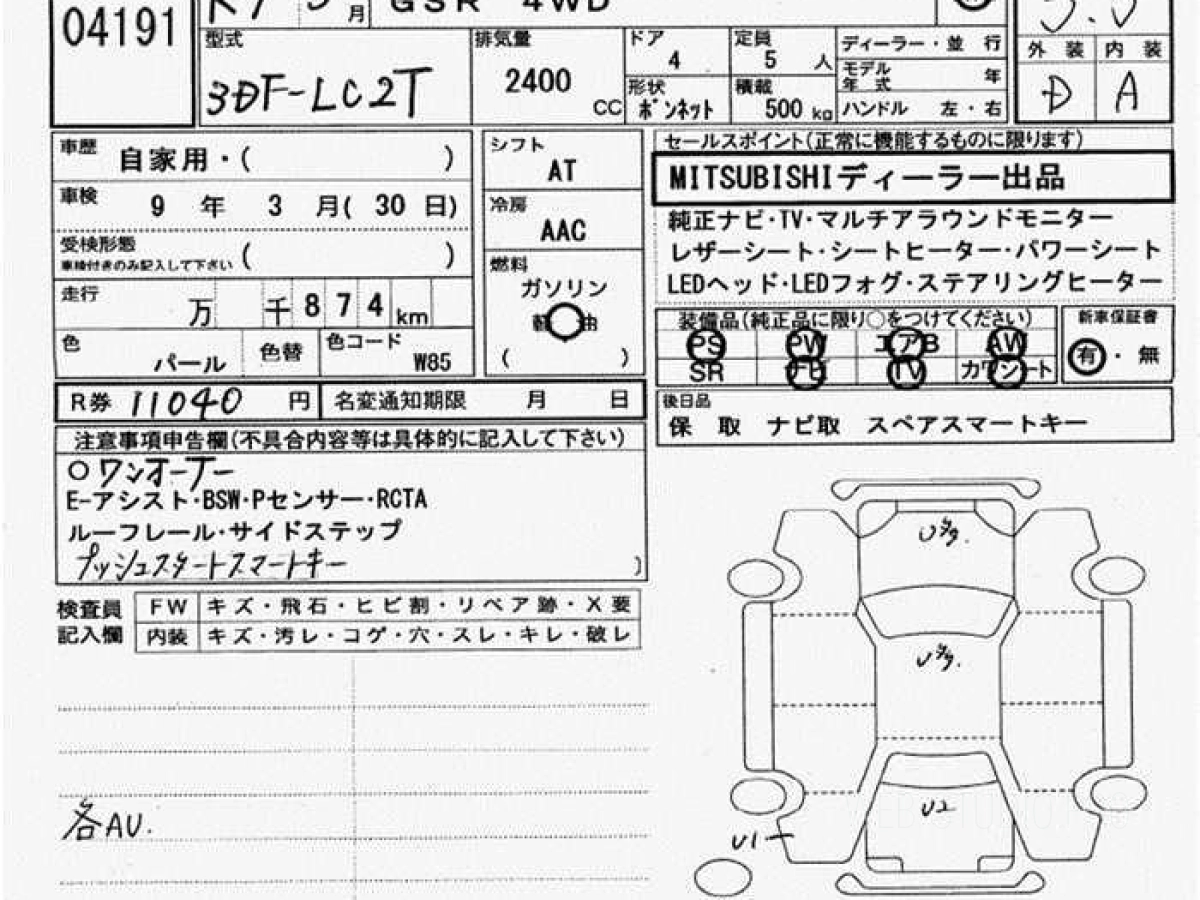 04191
R7 3月
GSR 4WD
型式
3DF-LC2T
排気量
2400
CC
ドア
4
定員
5 人
形状
ボンネット
積載
500 kg
ディーラー・並 行
モデル年式 年
ハンドル 左・右
外 装 内 装
D A
車歴
自家用・( )
車検
9 年 3 月( 30 日)
受検形態
車検付きのみ記入して下さい ( )
走行
万 千 8 7 4 km
色
パール
色替
色コード
W85
シフト
AT
冷房
AAC
燃料
ガソリン
軽 油
( )
セールスポイント(正常に機能するものに限ります)
MITSUBISHIディーラー出品
純正ナビ・TV・マルチアラウンドモニター
レザーシート・シートヒーター・パワーシート
LEDヘッド・LEDフォグ・ステアリングヒーター
装備品(純正品に限り○をつけてください)
PS PW エアB AW
SR ナビ TV カワシート
新車保証書
有・無
R券 11040 円
名変通知期限 月 日
後日品
保 取 ナビ取 スペアスマートキー
注意事項申告欄(不具合内容等は具体的に記入して下さい)
○ワンオーナー
E-アシスト・BSW・Pセンサー・RCTA
ルーフレール・サイドステップ
プッシュスタートスマートキー
検査員
記入欄
FW キズ・飛石・ヒビ割・リペア跡・X要
内装 キズ・汚レ・コゲ・穴・スレ・キレ・破レ
各AU.
U2
U1